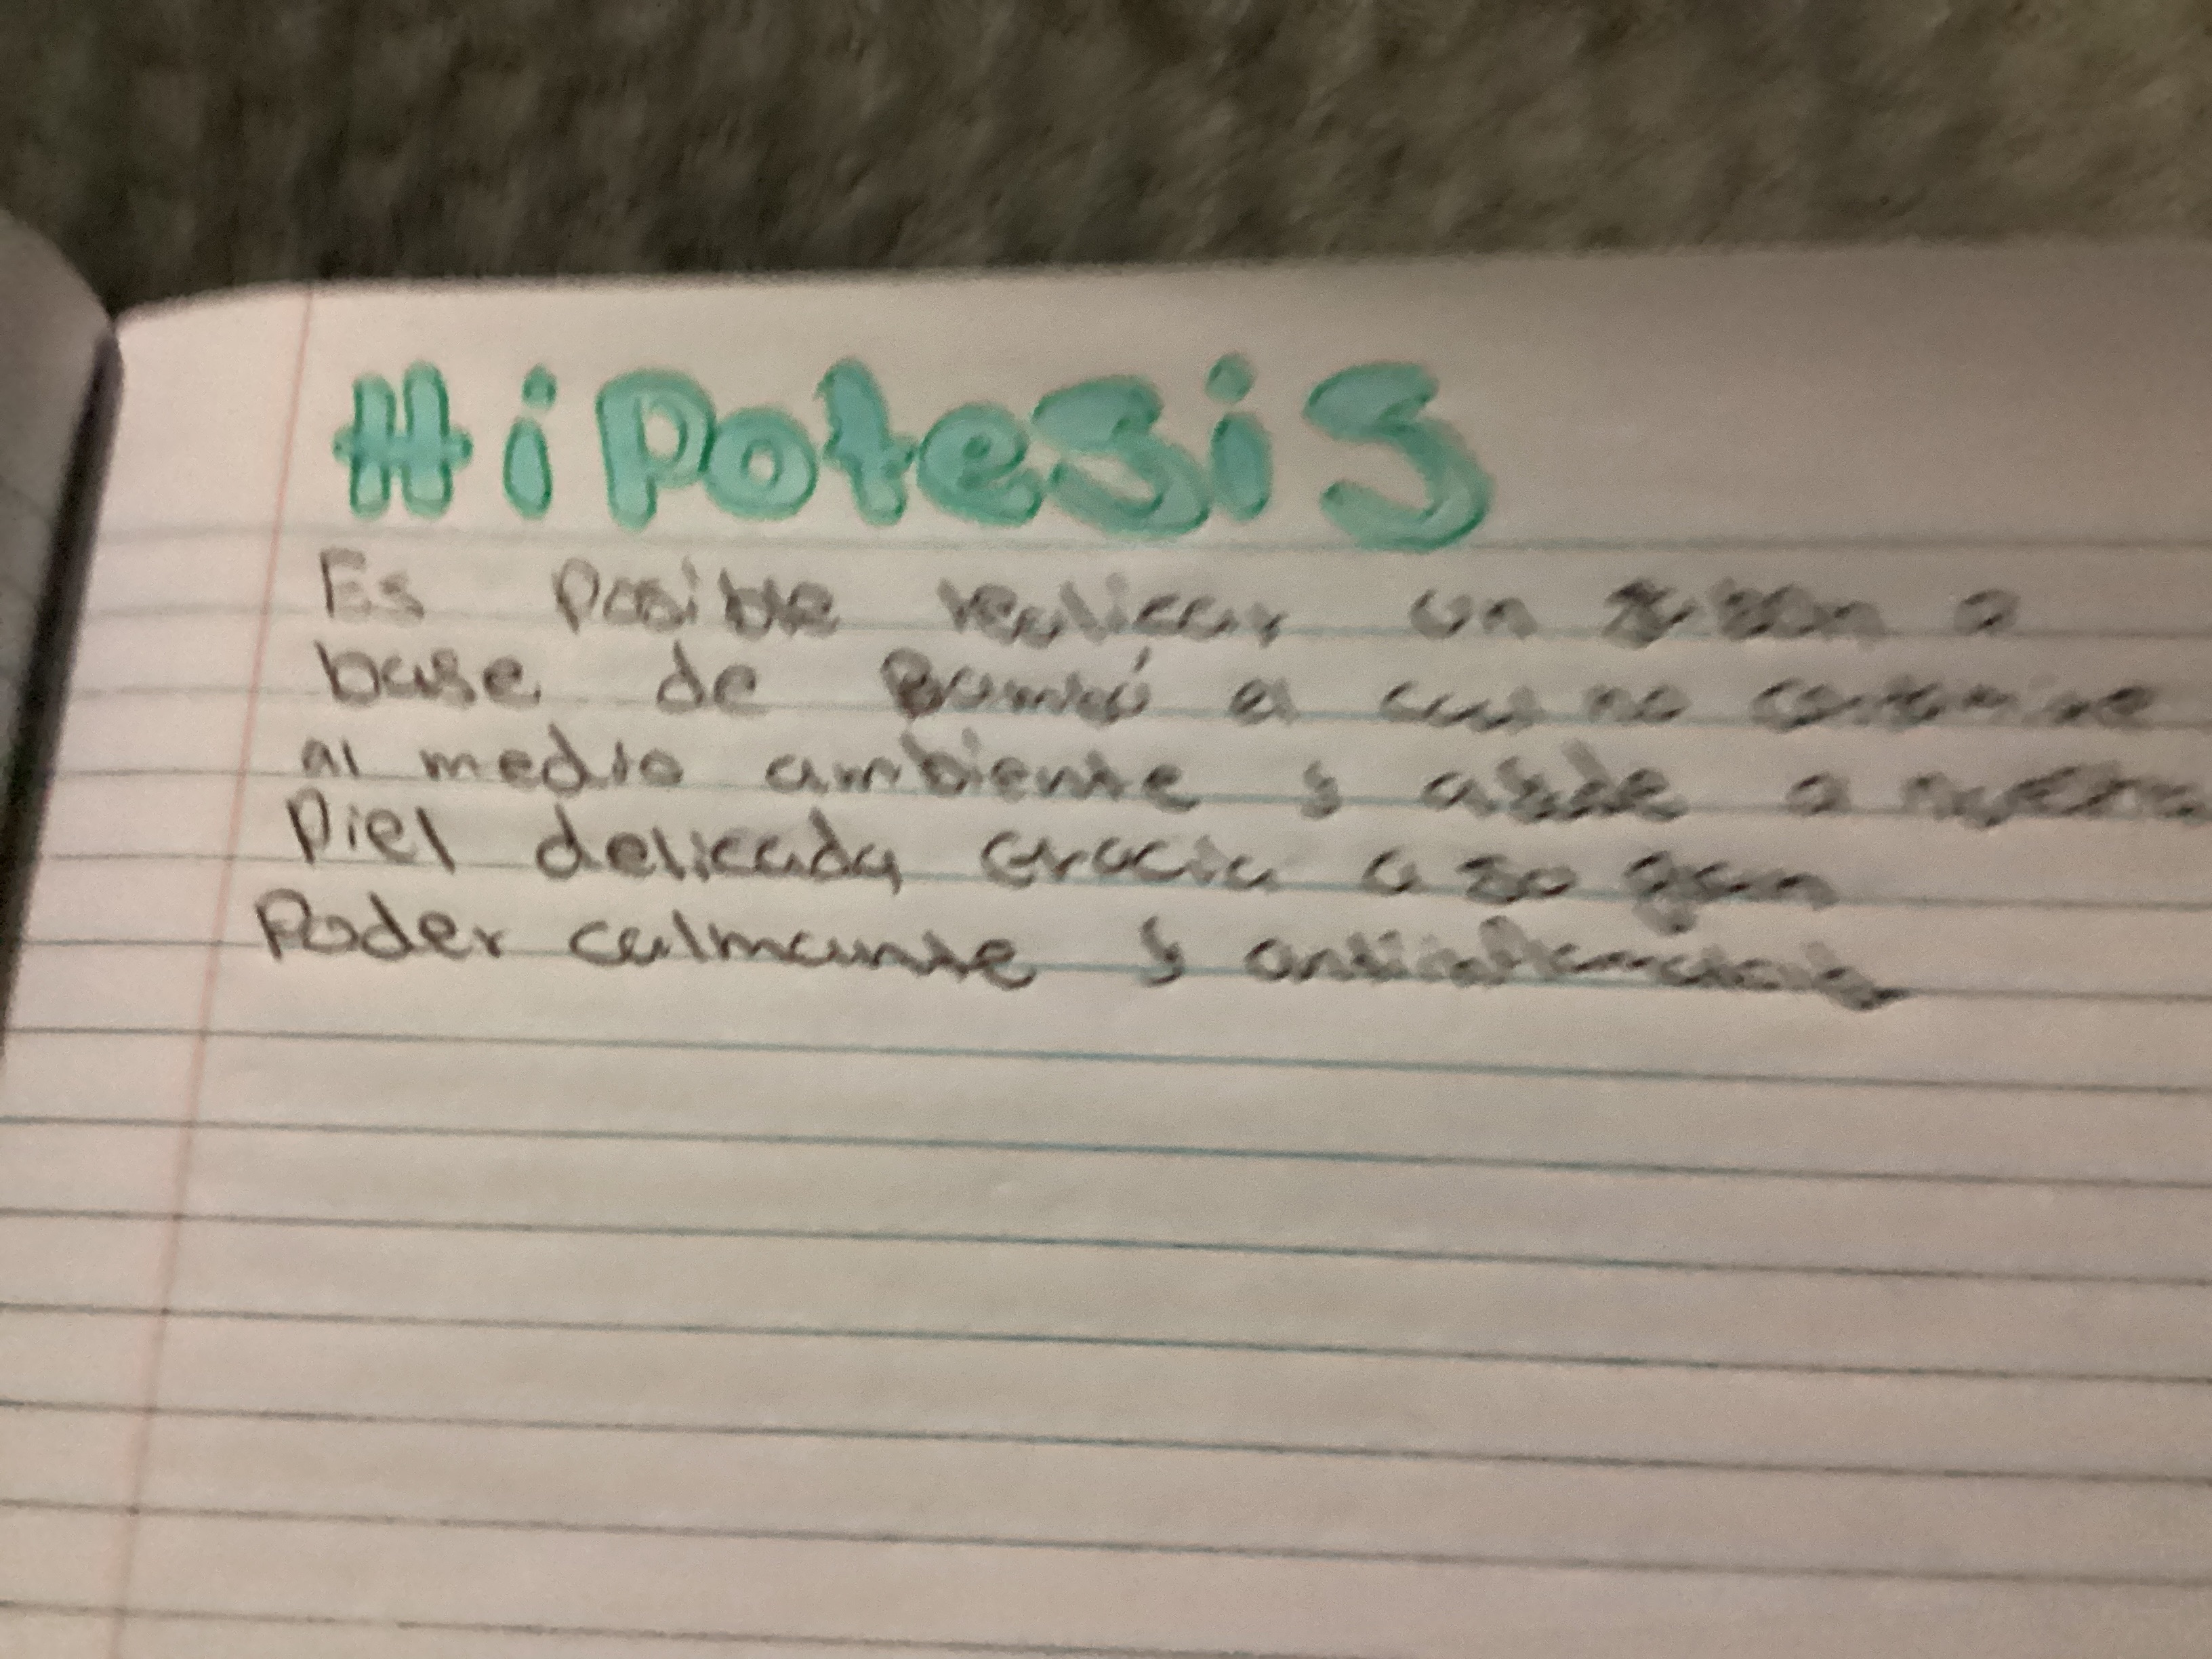 Hipotesis
Es posible realizar un a
base de Bambú el cual no contamine
al medio ambiente y a nuestra
Piel delicada Gracia a su gran
Poder calmante y